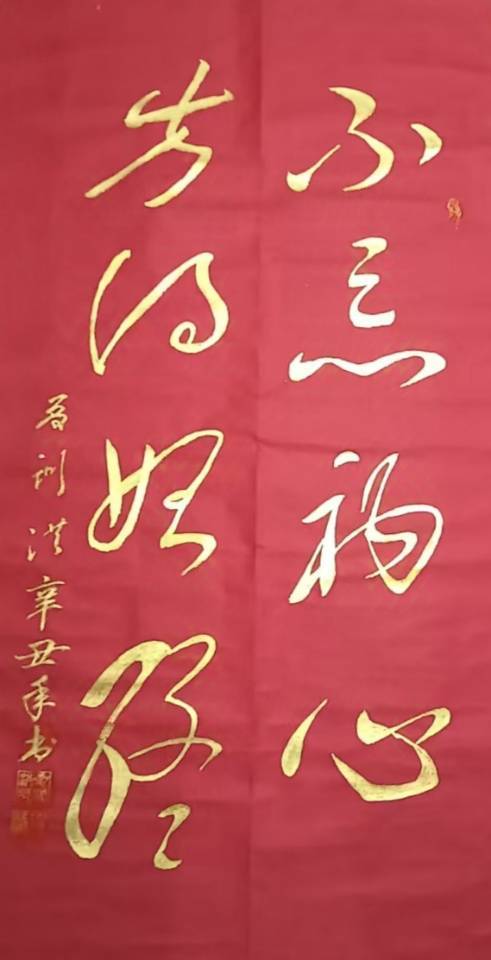 不忘初心
方得始终
洪辛丑年书